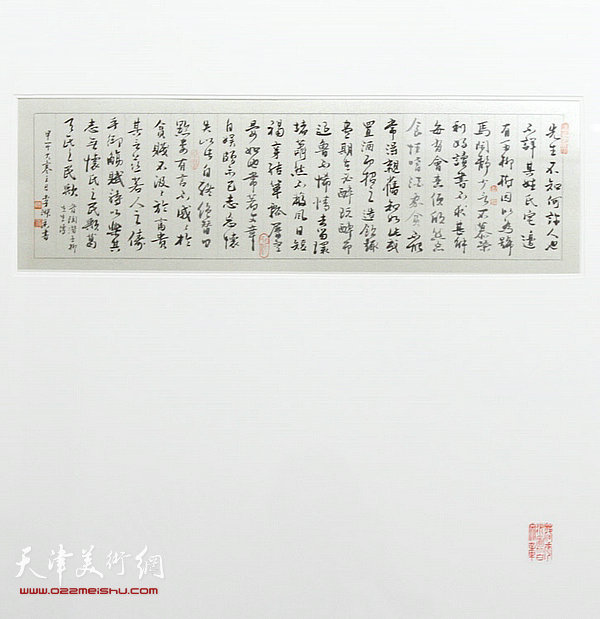 先生不知何許人也
不詳其姓氏宅邊
有五柳樹因以為號
焉閑靜少言不慕榮
利好讀書不求甚解
每有會意便欣然忘
食性嗜酒家貧不能
常得親舊知如此或
置酒而招之造飲輒
盡期在必醉既醉而
退曾不恡情去留環
堵蕭然不蔽風日短
褐穿結簞瓢屢空
晏如也常著文章
自娛頗示己志忘懷
失以此自終贊曰
黔婁有言不戚戚於
貧賤不汲汲於富貴
其言茲若人之儔
乎酬觴賦詩以樂其
志無懷氏之民歟葛
天氏之民歟 晉陶潛五柳
先生傳
甲午大寒之日李書
天津美術網
www.022meishu.com